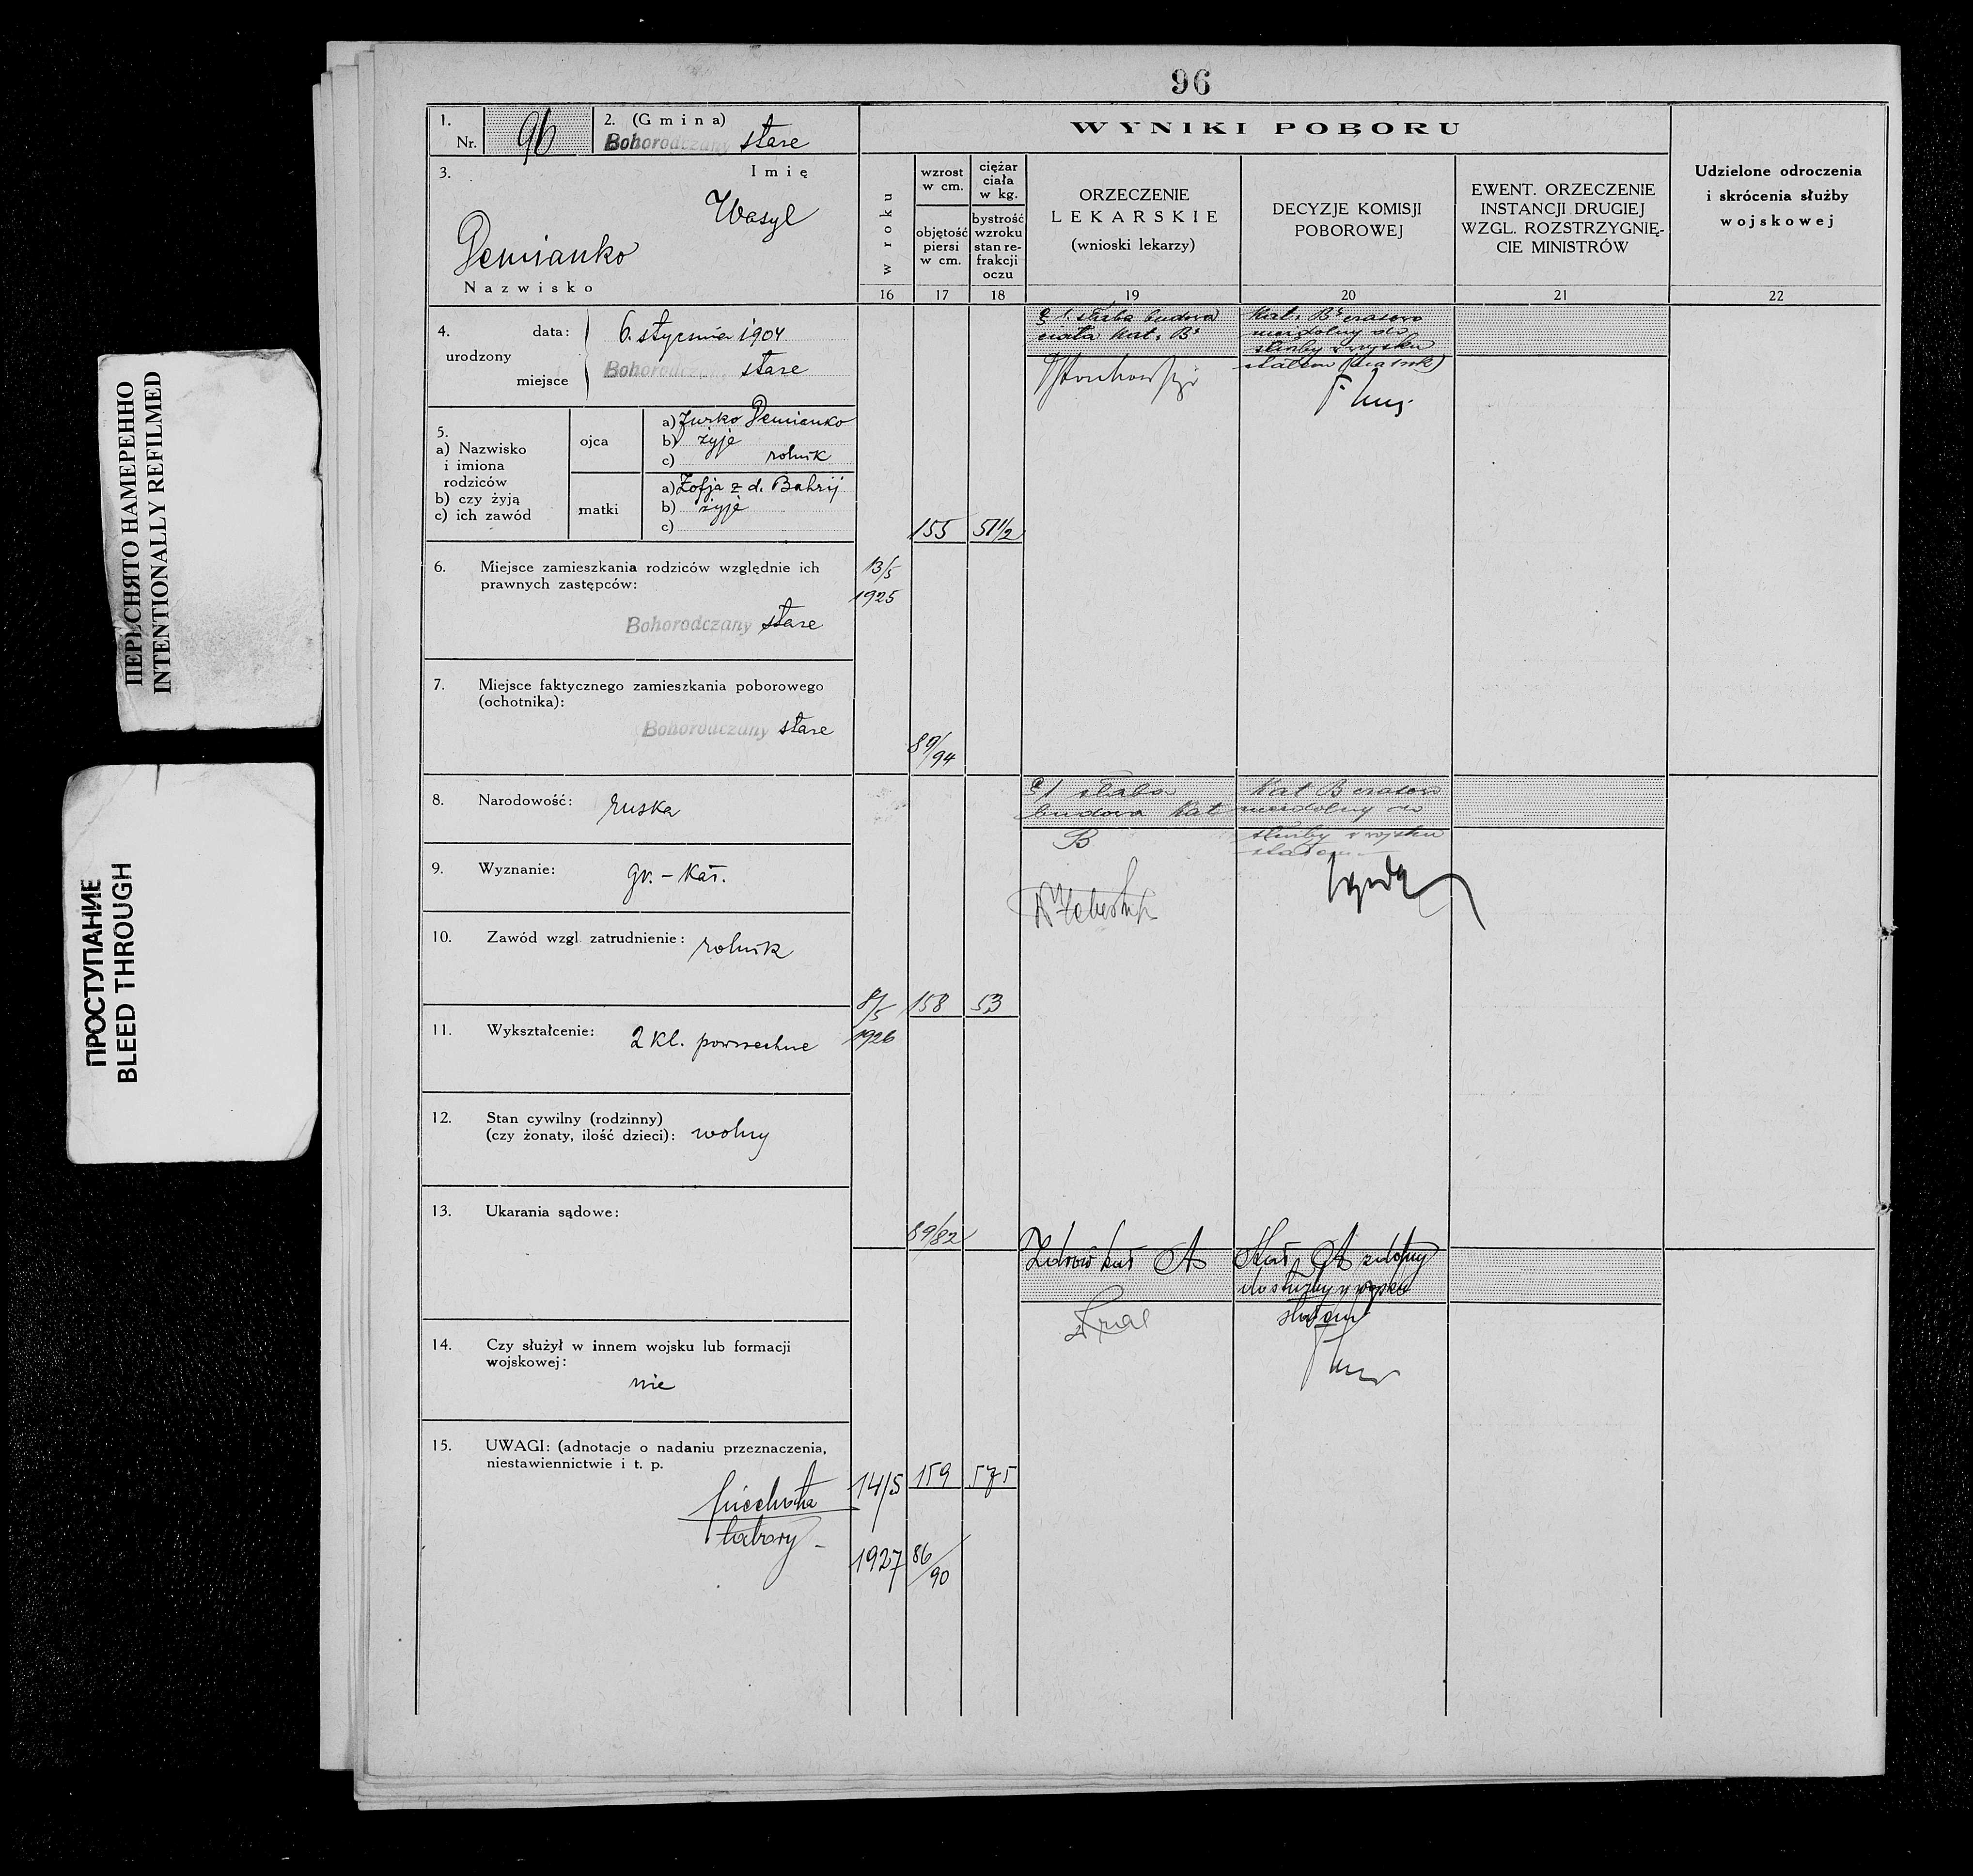 ПЕРЕСНЯТО НАМЕРЕННО
INTENTIONALLY REFILMED
ПРОСТУПАНИЕ
BLEED THROUGH
96
1.
Nr. 96
2. (Gmina)
Bohorodczany stare
3. Imię
Wasyl
Demianko
Nazwisko
4. urodzony
data: 6. stycznia 1904
miejsce Bohorodczany stare
5.
a) Nazwisko
i imiona
rodziców
b) czy żyją
c) ich zawód
ojca
a) Jurko Demianko
b) żyje
c) rolnik
matki
a) Zofja z d. Bahrij
b) żyje
c)
6. Miejsce zamieszkania rodziców względnie ich
prawnych zastępców:
Bohorodczany stare
7. Miejsce faktycznego zamieszkania poborowego
(ochotnika):
Bohorodczany stare
8. Narodowość: ruska
9. Wyznanie: gr.-kat.
10. Zawód wzgl. zatrudnienie: rolnik
11. Wykształcenie: 2 kl. powszechne
12. Stan cywilny (rodzinny)
(czy żonaty, ilość dzieci): wolny
13. Ukarania sądowe:
14. Czy służył w innem wojsku lub formacji
wojskowej:
nie
15. UWAGI: (adnotacje o nadaniu przeznaczenia,
niestawiennictwie i t. p.
piechota
tabory -
WYNIKI POBORU
w roku
16
wzrost
w cm.
objętość
piersi
w cm.
17
ciężar
ciała
w kg.
bystrość
wzroku
stan re-
frakcji
oczu
18
ORZECZENIE
LEKARSKIE
(wnioski lekarzy)
19
DECYZJE KOMISJI
POBOROWEJ
20
EWENT. ORZECZENIE
INSTANCJI DRUGIEJ
WZGL. ROZSTRZYGNIĘ-
CIE MINISTRÓW
21
Udzielone odroczenia
i skrócenia służby
wojskowej
22
13/5
1925
155
51 1/2
89/94
słaba budowa
ciała Kat. B
Kat. B czasowo
niezdolny do
służby w wojsku
stałem
8/5
1926
158
53
89/82
słaba
budowa Kat
B
Kat B czasowo
niezdolny do
służby w wojsku
stałem
14/5
1927
159
575
86/90
Zdrów kat A
Kat. A zdolny
do służby w wojsku
stałem